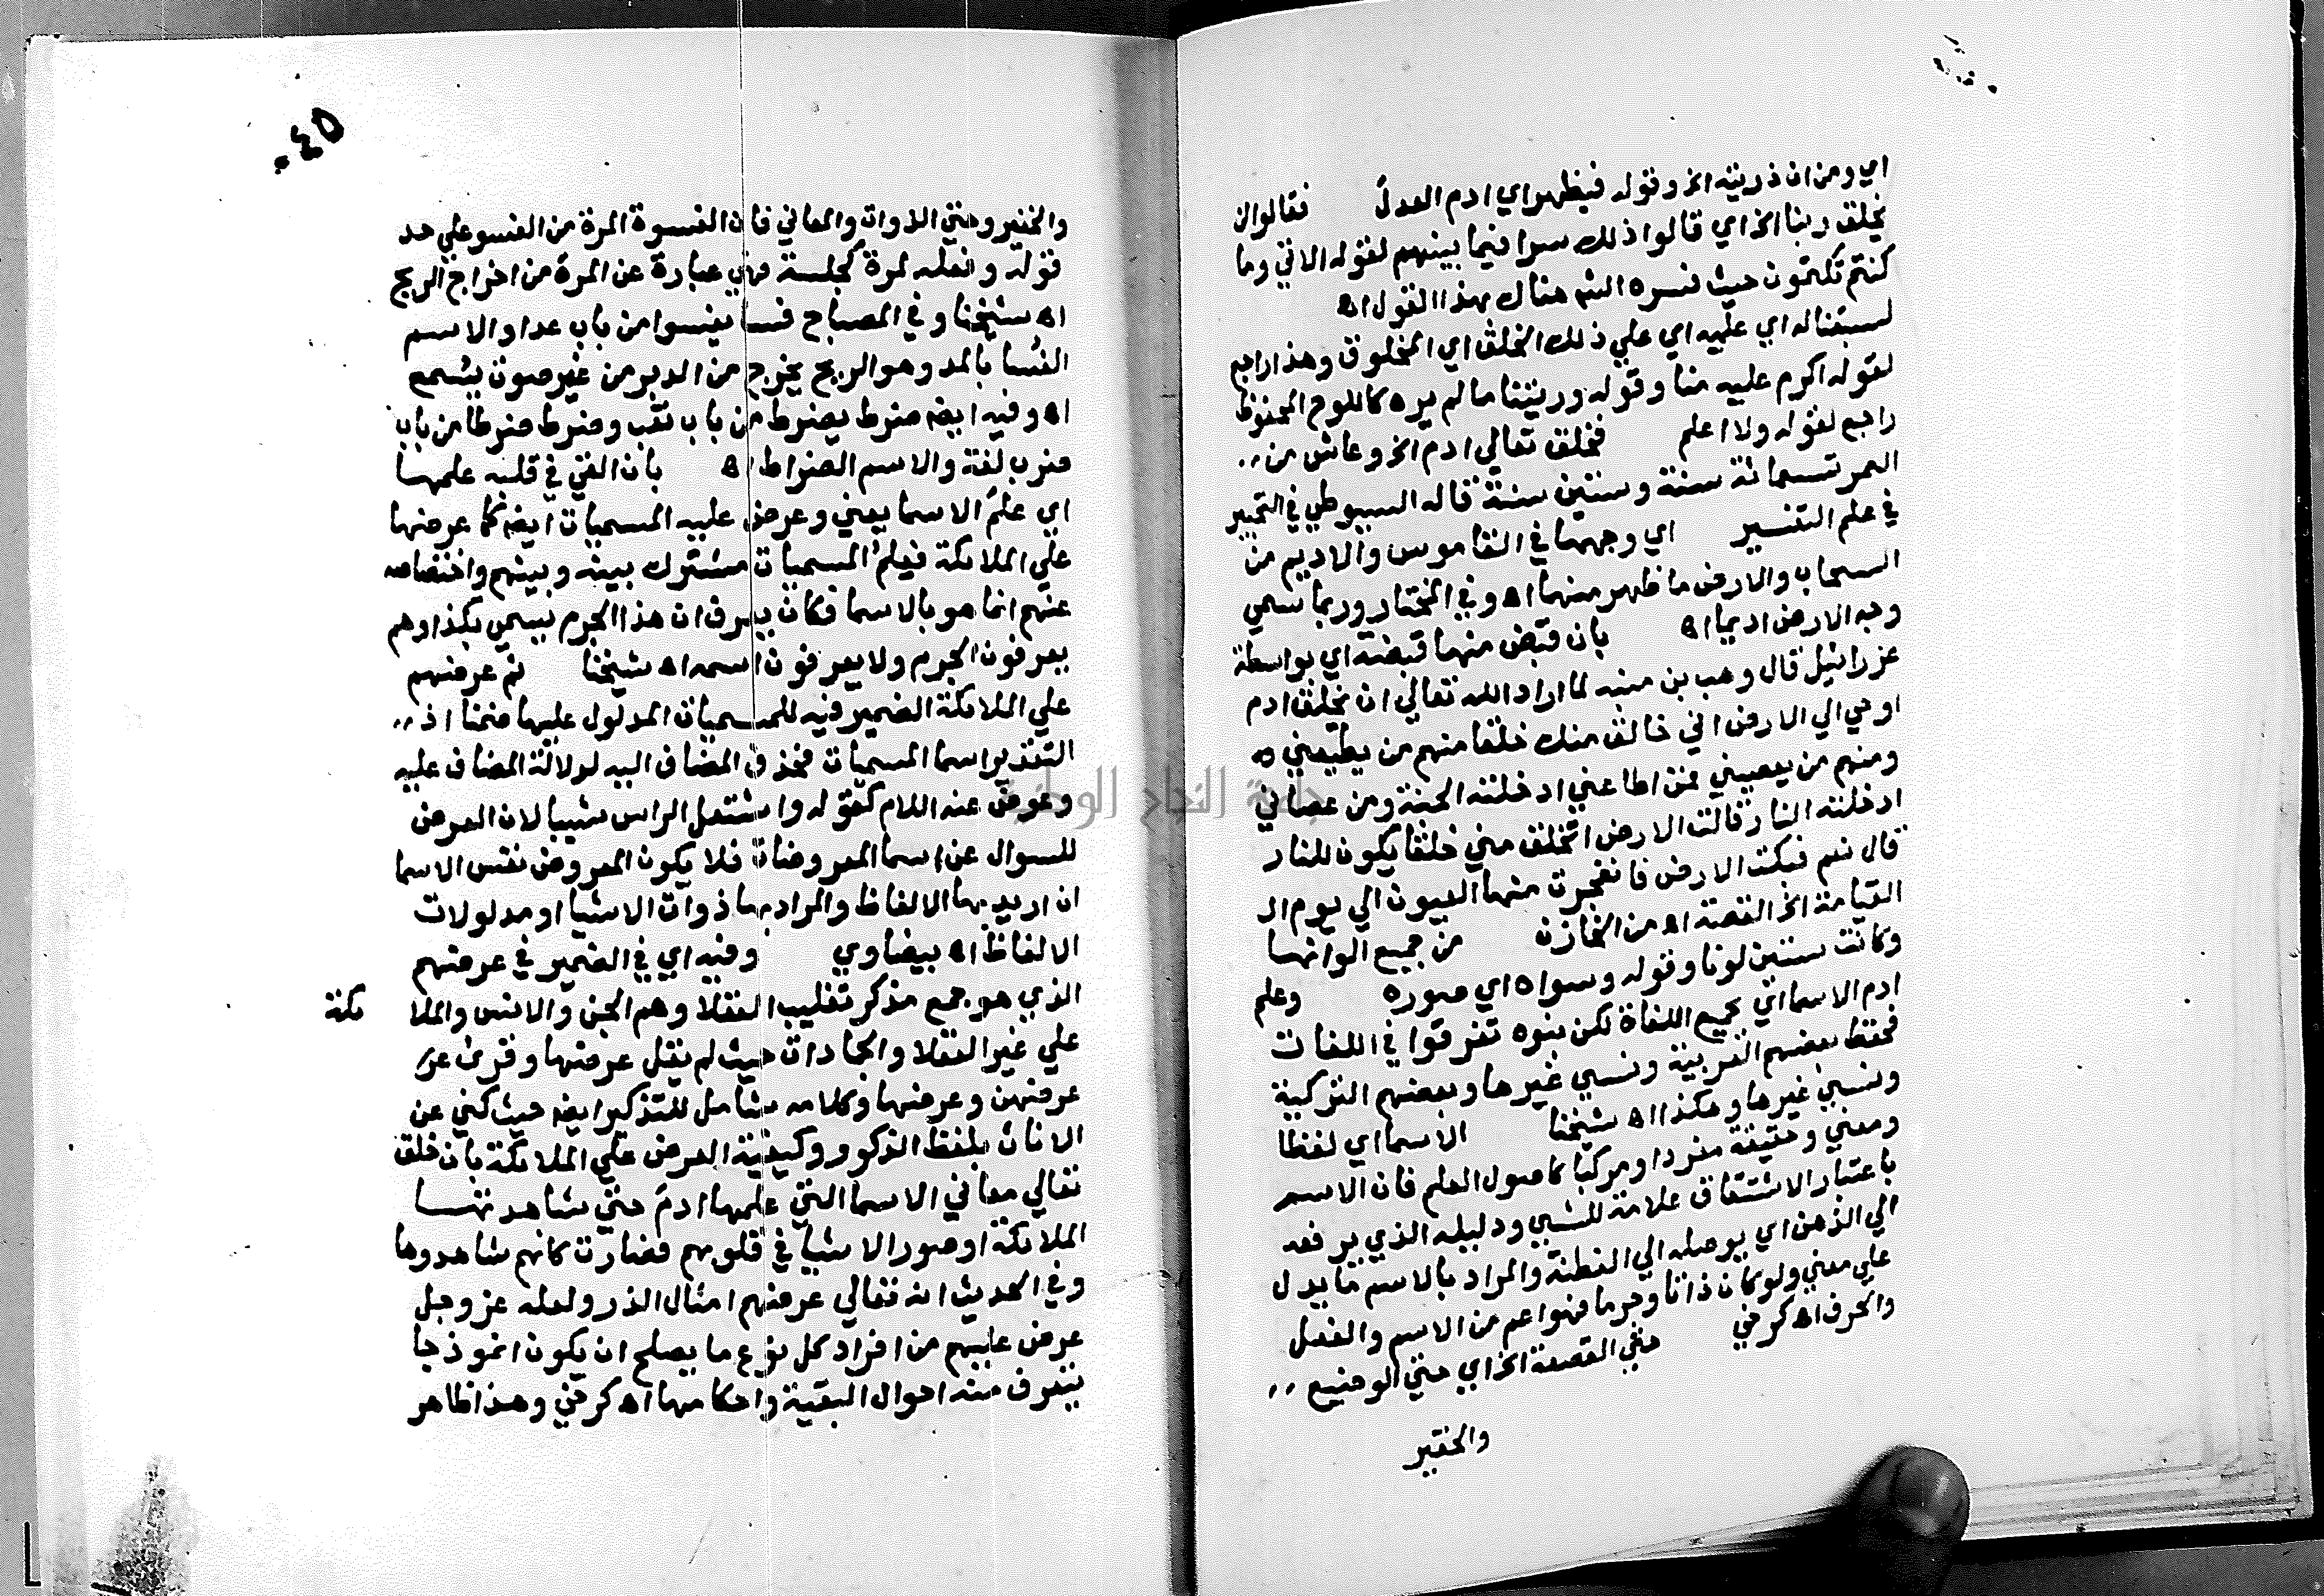 اي ومن ان ذريته الخ وقوله فيظهر اي ادم العدل فقالوا لن
يخلق ربنا الخ اي قالوا ذلك سرا فيما بينهم لقوله الاتي وما
كنتم تكتمون حيث فسره الشم هناك بهذا القول اه
لسبقنا له اي عليه اي علي ذلك الخلق اي المخلوق وهذا راجع
لقوله اكرم عليه منا وقوله وريتنا ما لم يره كاللوح المحفوظ
راجع لقوله ولا اعلم فخلق تعالي ادم الخ وعاش من
العمر تسعمائة سنة وستين سنة قاله السيوطي في التحبير
في علم التفسير اي وجهها في القاموس والاديم من
السحاب والارض ما ظهر منهما اه وفي المختار وربما سمي
وجه الارض اديما اه بان قبض منها قبضة اي بواسطة
عزرائيل قال وهب بن منبه لما اراد الله تعالي ان يخلق ادم
اوحي الي الارض اني خالق منك خلقا منهم من يطيعني
ومنهم من يعصيني فمن اطاعني ادخلته الجنة ومن عصاني
ادخلته النار قالت الارض اتخلق مني خلقا يكون للنار
قال نعم فبكت الارض فانفجرت منها العيون الي يوم ال
القيامة الخ القصة اه من الخازن من جميع الوانها
وكانت ستين لونا وقوله وسواه اي صوره وعلم
ادم الاسما اي بجميع اللغاة لكن بنوه تفرقوا في اللغات
فحفظ بعضهم العربية ونسي غيرها وبعضهم التركية
ونسي غيرها وهكذا اه شيخنا الاسما اي لفظا
ومعني وحقيقة مفردا ومركبا كاصول العلم فان الاسم
باعتبار الاشتقاق علامة للشي ودليله الذي يرفعه
الي الذهن اي يوصله الي الفطنة والمراد بالاسم ما يدل
علي معني ولو كان ذاتا وجرما فهو اعم من الاسم والفعل
والحرف اه كرخي حتي القصعة الخ اي حتي الوضيع
والحقير
٤٥
والحقير وحتي الذوات والمعاني فان الفسوة المرة من الفسو علي حد
قوله وفعله لمرة كجلسة فهي عبارة عن المرة من اخراج الريح
اه شيخنا وفي المصباح فسا يفسوا من باب عدا والاسم
الفسا بالمد وهو الريح يخرج من الدبر من غير صوت يسمع
اه وفيه ايضه ضرط يضرط من باب تعب وضرط ضرطا من باب
ضرب لغة والاسم الضراط اه بان القي في قلبه علمها
اي علم الاسما يعني وعرض عليه المسميات ايضه كما عرضها
علي الملائكة فعلم المسميات مشترك بينه وبينهم واختصاصه
عنهم انما هو بالاسما فكان يعرف ان هذا الجرم يسمي بكذا وهم
يعرفون الجرم ولا يعرفون اسمه اه شيخنا ثم عرضهم
علي الملائكة الضمير فيه للمسميات المدلول عليها ضمنا اذ
التقدير اسما المسميات فحذف المضاف اليه لدلالة المضاف عليه
وعوض عنه اللام كقوله واشتعل الراس شيبا لان العرض
للسوال عن اسما المعروضات فلا يكون المعروض نفس الاسما
ان اريد بها الالفاظ والمراد بها ذوات الاشيا او مدلولات
الالفاظ اه بيضاوي وفيه اي في الضمير في عرضهم
الذي هو جمع مذكر تغليب العقلا وهم الجن والانس والملا ئكة
علي غير العقلا والجمادات حيث لم يقل عرضها وقرئ عر
عرضهن وعرضها وكلامه شامل للتذكير ايضه حيث كني عن
الاناث بلفظ الذكور وكيفية العرض علي الملائكة بان خلق
تعالي معاني الاسما التي علمها ادم حتي شاهدتها
الملائكة او صور الاشيا في قلوبهم فصارت كانهم شاهدوها
وفي الحديث انه تعالي عرضهم امثال الذر ولعله عز وجل
عرض عليهم من افراد كل نوع ما يصلح ان يكون انموذجا
يتعرف منه احوال البقية واحكامها اه كرخي وهذا ظاهر
جامعة النجاح الوطنية